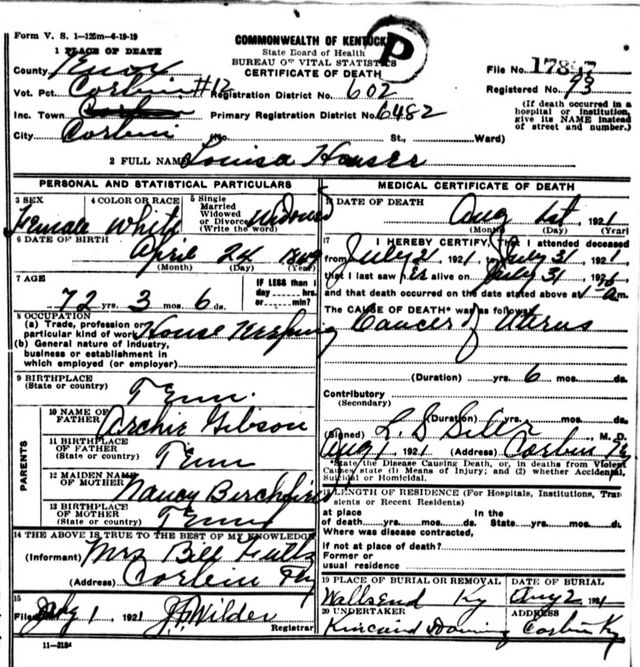 Form V. S. 1—125m—6-19-19
COMMONWEALTH OF KENTUCKY
P
State Board of Health
BUREAU OF VITAL STATISTICS
CERTIFICATE OF DEATH
1 PLACE OF DEATH
County Knox
File No. 178
Vot. Pct. Corbin #12 Registration District No. 602
Registered No. 93
Inc. Town Corbin Primary Registration District No. 6482
(If death occurred in a
hospital or institution,
give its NAME instead
of street and number.)
City Corbin (No. St., Ward)
2 FULL NAME Louisa Houser
PERSONAL AND STATISTICAL PARTICULARS
3 SEX Female
4 COLOR OR RACE White
5 Single
Married
Widowed
or Divorced
(Write the word)
Widowed
6 DATE OF BIRTH
April 24 1849
(Month) (Day) (Year)
7 AGE
72 yrs. 3 mos. 6 ds.
IF LESS than 1
day ---- hrs.
or ---- min?
8 OCCUPATION
(a) Trade, profession or
particular kind of work House Keeping
(b) General nature of industry,
business or establishment in
which employed (or employer)
9 BIRTHPLACE
(State or country) Tenn.
PARENTS
10 NAME OF
FATHER Archie Gibson
11 BIRTHPLACE
OF FATHER
(State or country) Tenn
12 MAIDEN NAME
OF MOTHER Nancy
13 BIRTHPLACE
OF MOTHER
(State or country) Tenn
14 THE ABOVE IS TRUE TO THE BEST OF MY KNOWLEDGE
(Informant) Mrs Bell
(Address) Corbin Ky
15
Filed 1, 1921 J Wilder
Registrar
11-3184
MEDICAL CERTIFICATE OF DEATH
DATE OF DEATH
Aug 1st, 1921
(Month) (Day) (Year)
17 I HEREBY CERTIFY, That I attended deceased
from July 21, 1921 July 31, 1921
that I last saw her alive on July 31, 19
and that death occurred on the date stated above at m.
The CAUSE OF DEATH* was as follows:
Cancer of Uterus
(Duration) yrs. 6 mos. ds.
Contributory
(Secondary)
(Duration) yrs. mos. ds.
(Signed) L. S. Siler, M. D.
Aug 1, 1921 (Address) Corbin Ky
*State the Disease Causing Death, or, in deaths from Violent
Causes, state (1) Means of Injury; and (2) whether Accidental,
Suicidal or Homicidal.
LENGTH OF RESIDENCE (For Hospitals, Institutions, Tran-
sients or Recent Residents)
at place In the
of death yrs. mos. ds. State yrs. mos. ds.
Where was disease contracted,
if not at place of death?
Former or
usual residence
19 PLACE OF BURIAL OR REMOVAL DATE OF BURIAL
Wallsend Ky Aug 2 1921
20 UNDERTAKER ADDRESS
Kincaid Corbin Ky